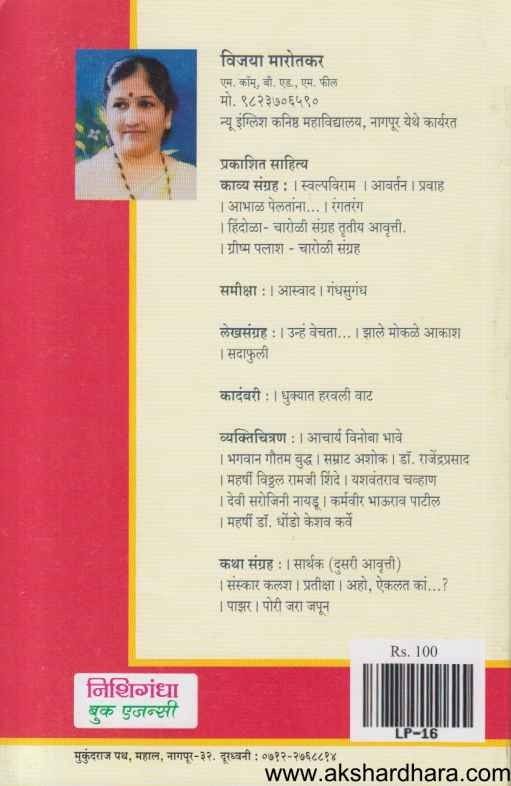 विजया मारोतकर
एम. कॉम, बी. एड., एम. फील
मो. ९८२३७०६५९०
न्यू इंग्लिश कनिष्ठ महाविद्यालय, नागपूर येथे कार्यरत
प्रकाशित साहित्य
काव्य संग्रह : । स्वल्पविराम । आवर्तन । प्रवाह
। आभाळ पेलतांना... । रंगतरंग
। हिंदोळा- चारोळी संग्रह तृतीय आवृत्ती.
। ग्रीष्म पलाश - चारोळी संग्रह
समीक्षा : । आस्वाद । गंधसुगंध
लेखसंग्रह : । उन्हं वेचता... । झाले मोकळे आकाश
। सदाफुली
कादंबरी : । धुक्यात हरवली वाट
व्यक्तिचित्रण : । आचार्य विनोबा भावे
। भगवान गौतम बुद्ध । सम्राट अशोक । डॉ. राजेंद्रप्रसाद
। महर्षी विठ्ठल रामजी शिंदे । यशवंतराव चव्हाण
। देवी सरोजिनी नायडू । कर्मवीर भाऊराव पाटील
। महर्षी डॉ. धोंडो केशव कर्वे
कथा संग्रह : । सार्थक (दुसरी आवृत्ती)
। संस्कार कलश । प्रतीक्षा । अहो, ऐकलत कां...?
। पाझर । पोरी जरा जपून
Rs. 100
LP-16
निशिगंधा
बुक एजन्सी
मुकुंदराज पथ, महाल, नागपूर-३२. दूरध्वनी : ०७१२-२७६८८१४
www.akshardhara.com